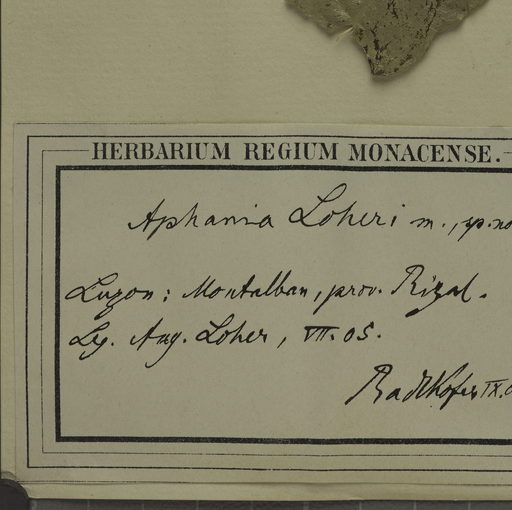 HERBARIUM REGIUM MONACENSE.
Aphania Loheri m., sp. no
Luzon: Montalban, prov. Rizal.
Leg. Aug. Loher, VII. 05.
Radlkofer IX.